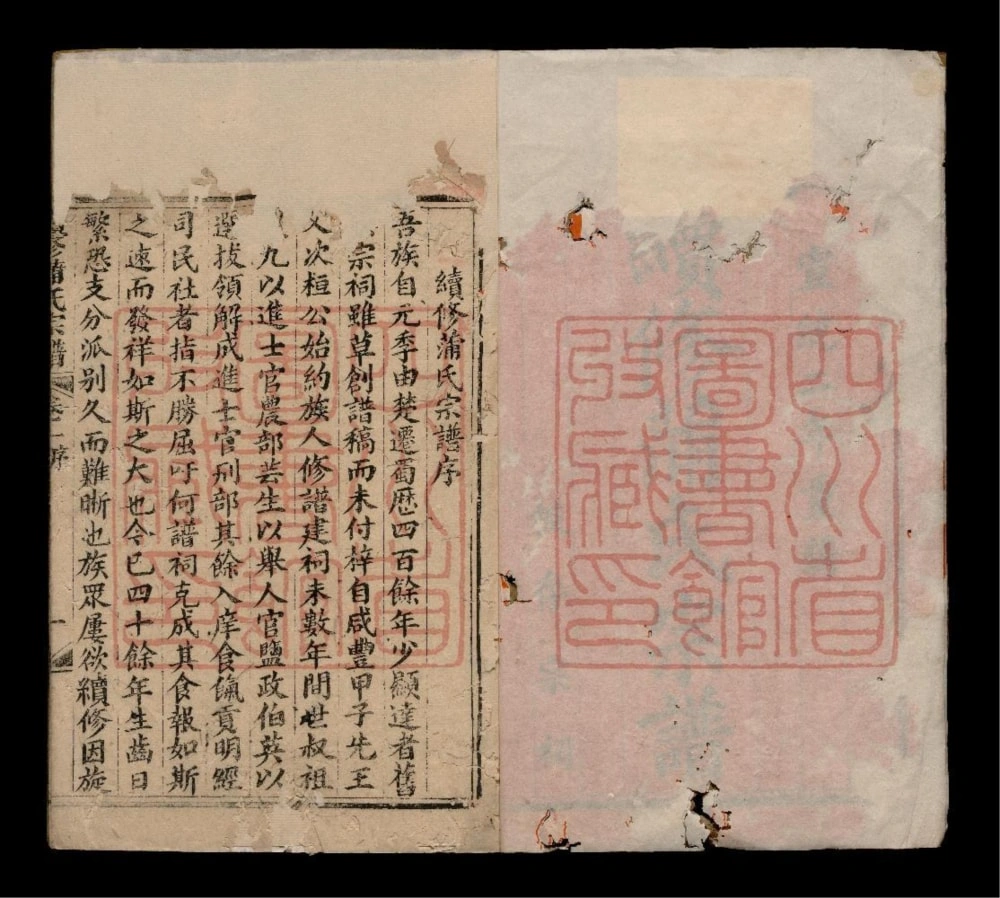 四川省
圖書館
收藏印
續修蒲氏宗譜序
吾族自元季由楚遷蜀歷四百餘年少顯達者舊
宗祠雖草創譜稿而未付梓自咸豐甲子先王
父次桓公始約族人修譜建祠未數年間世叔祖
九以進士官農部芸生以舉人官鹽政伯英以
選拔領解成進士官刑部其餘入庠食餼貢明經
司民社者指不勝屈吁何譜祠克成其食報如斯
之速而發祥如斯之大也今已四十餘年生齒日
繁恐支分派別久而難晰也族眾屢欲續修因旋
修蒲氏宗譜 卷一 序 一